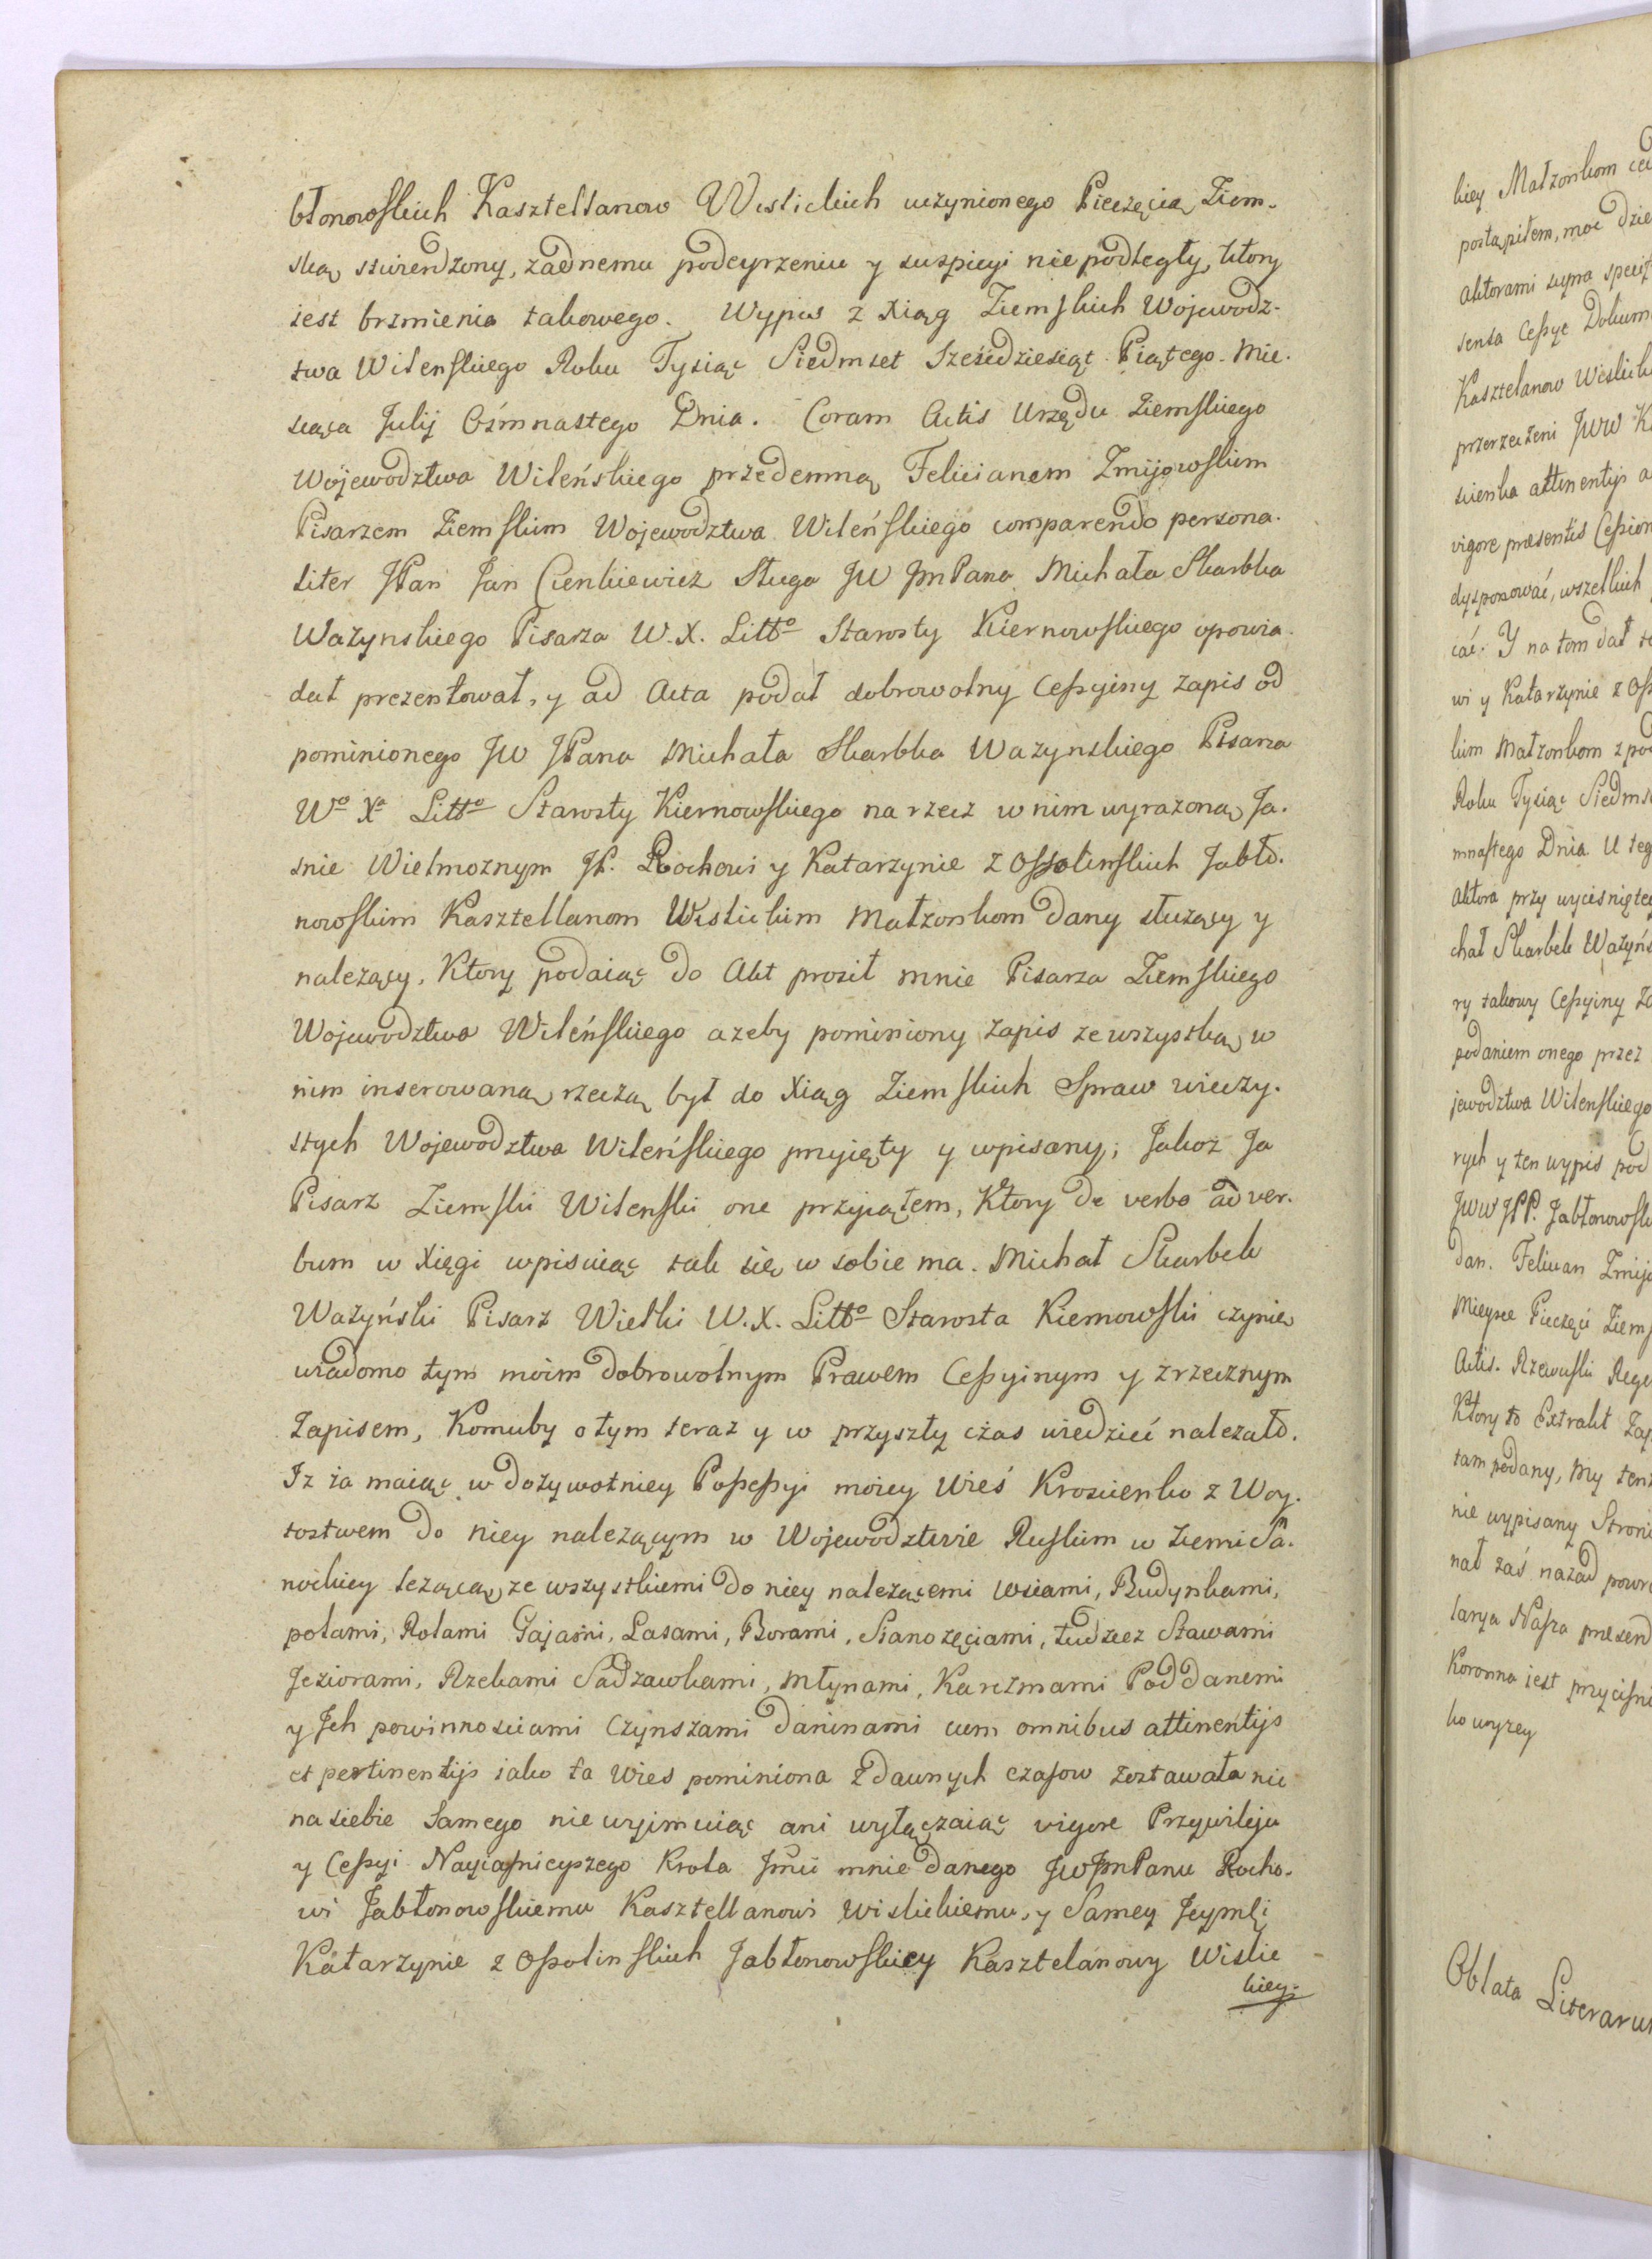 błonowskich Kasztellanow Wislickich uczynionego Pieczęcią Ziem-
ską stwierdzony, żadnemu podeyrzeniu y suspicyi nie podległy, ktory
iest brzmienia takowego. Wypis z Xiąg Ziemskich Wojewodz-
twa Wilenskiego Roku Tysiąc Siedmset Sześćdziesiąt Piątego. Mie-
siąca Julij Ośmnastego Dnia. Coram Actis Urzędu Ziemskiego
Wojewodztwa Wileńskiego przedemną Felicianem Zmijowskim
Pisarzem Ziemskim Wojewodztwa Wileńskiego comparendo persona-
liter JPan Jan Cienkiewicz Sługa JW JmPana Michała Skarbka
Wazynskiego Pisarza W. X. Litto Starosty Kiernowskiego opowia-
dał prezentował, y ad Acta podał dobrowolny Cessyiny zapis od
pominionego JW JPana Michała Skarbka Wazynskiego Pisarza
Wo Xa Litto Starosty Kiernowskiego na rzecz w nim wyrażoną Ja-
snie Wielmoznym JP. Rochowi y Katarzynie z Ossolinskich Jabło-
nowskim Kasztellanom Wislickim Małzonkom dany służący y
należący, Ktory podaiąc do Akt prosił mnie Pisarza Ziemskiego
Wojewodztwa Wileńskiego azeby pominiony zapis ze wszystką w
nim inserowaną rzeczą był do Xiąg Ziemskich Spraw wieczy-
stych Wojewodztwa Wileńskiego przyięty y wpisany; Jakoż Ja
Pisarz Ziemski Wilenski one przyiąłem, Ktory de verbo ad ver-
bum w Xięgi wpisuiąc tak się w sobie ma. Michał Skarbek
Ważyński Pisarz Wielki W. X. Litto Starosta Kiernowski czynię
wiadomo tym moim dobrowolnym Prawem Cessyinym y zrzecznym
Zapisem, Komuby o tym teraz y w przyszły czas wiedzieć nalezało.
Iz ia maiąc w dożywotniey Possessyi moiey Wieś Krościenko z Woy-
tostwem do niey należącym w Wojewodztwie Ruskim w Ziemi Sa-
nockiey leżącą ze wszystkiemi do niey należącemi wsiami, Budynkami,
polami, Rolami Gajami, Lasami, Borami, Sianożęciami, tudzież Stawami
Jeziorami, Rzekami Sadzawkami, Młynami, Karczmami Poddanemi
y Jch powinnosciami Czynszami daninami cum omnibus attinentijs
et pertinentijs iako ta Wies pominiona z dawnych czasow zostawała nic
na siebie Samego nie wyimuiąc ani wyłączaiąc vigore Przywileju
y Cessyi Nayiasnieyszego Krola Jmći mnie danego JWJmPanu Rocho-
wi Jabłonowskiemu Kasztellanowi Wislickiemu, y Samey Jeymći
Katarzynie z Ossolinskich Jabłonowskiey Kasztelanowy Wislic
kiey.
kiey Małzonkom
postąpiłem, moc
Aktorami supra
senta Cessye
Kasztelanow
przerzeczeni JWW
scienka attinentijs
vigore præsentis
dysponować, wszelkich
cać. Y na tom dał
wi y Katarzynie z
kim Małzonkom
Roku Tysiąc
mnastego Dnia. U
Aktora przy
chał Skarbek
ry takowy Cessyiny
podaniem onego przez
jewodztwa Wilenskiego
rych y ten wypis pod
JWW JPP.
dan. Felician
Mieysce Pieczęci
Actis. Rzewuski
Ktory to Extrakt
tam podany, My
nie wypisany
nał zaś nazad
larya Nasza
Koronna iest
ko wyzey
Oblata